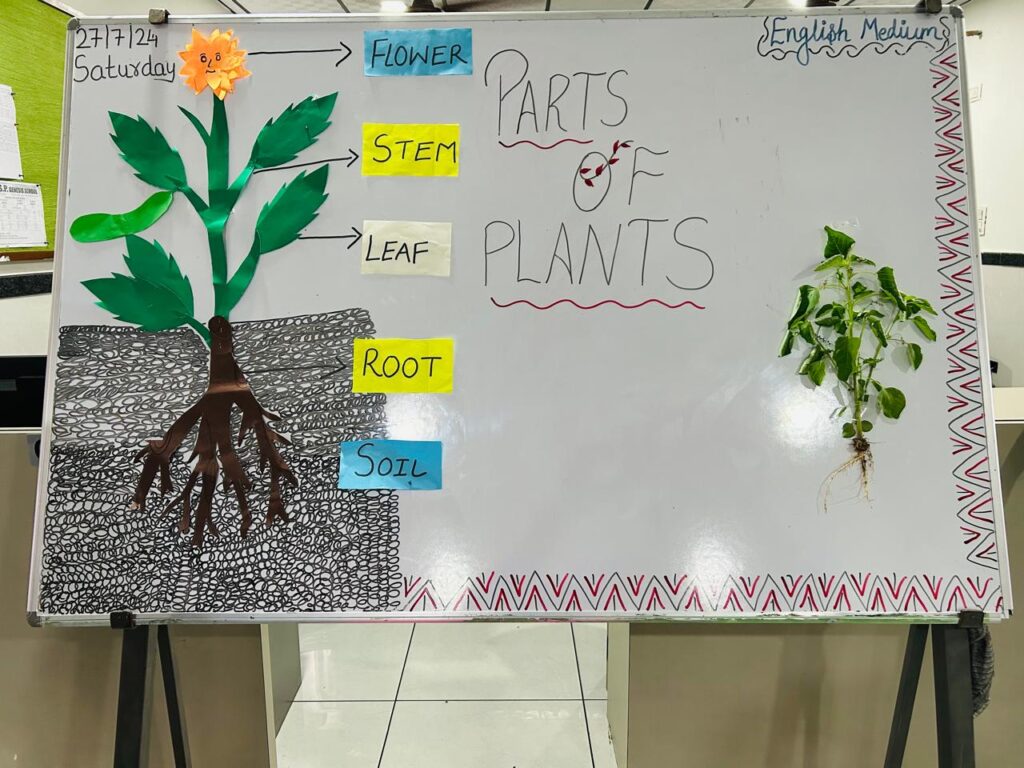 27/7/24
Saturday
English Medium
FLOWER
STEM
LEAF
ROOT
SOIL
PARTS
OF
PLANTS